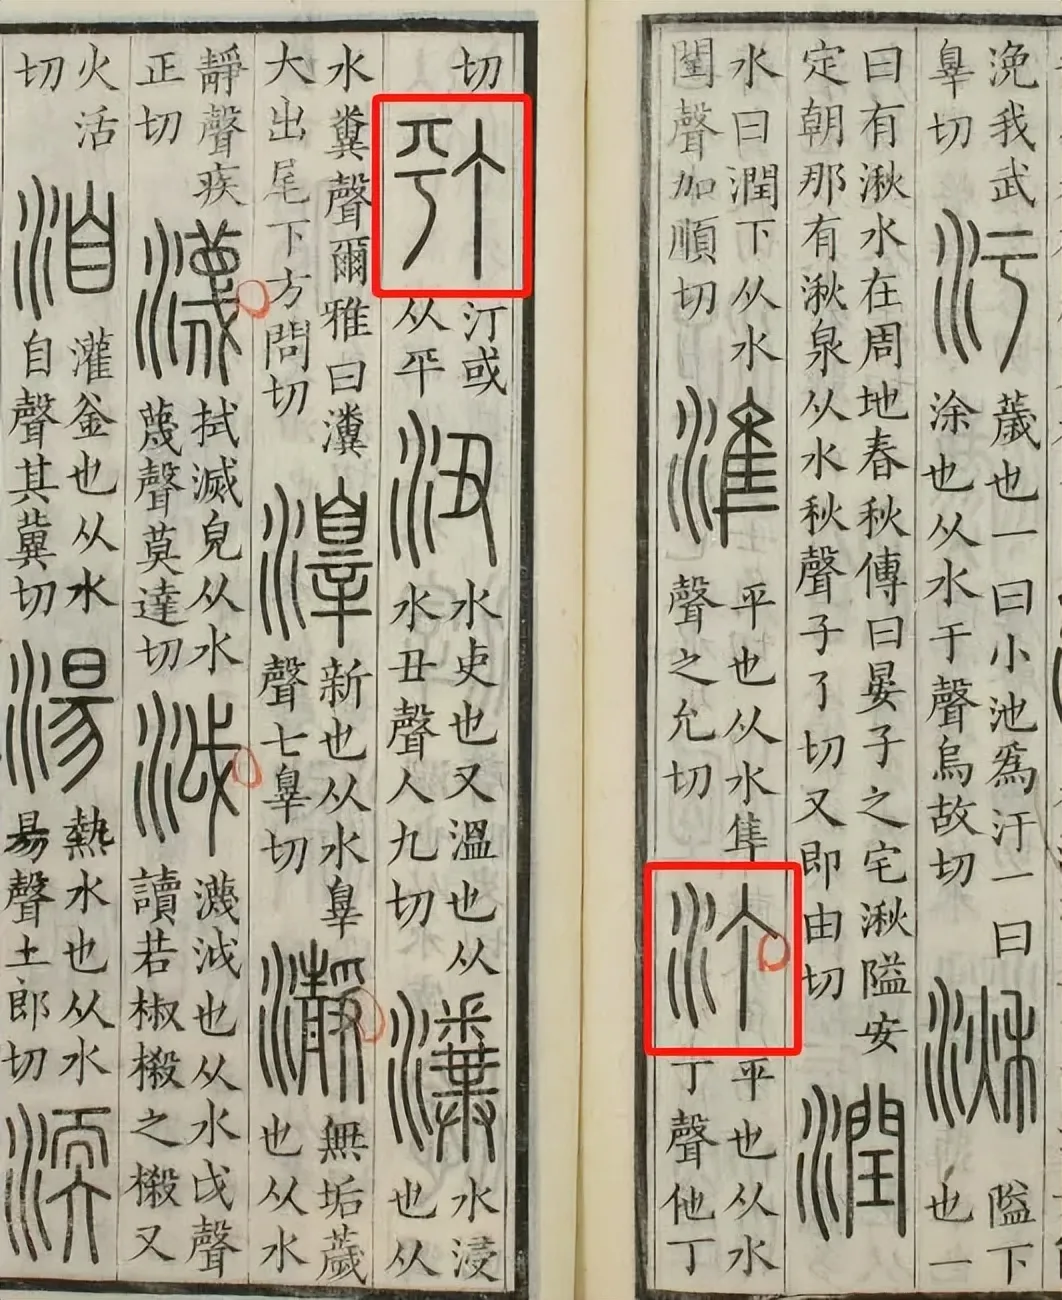 浼我武
辠切
汙
薉也一曰小池爲汙一曰
涂也从水于聲烏故切
湫
隘下
也一
曰有湫水在周地春秋傳曰晏子之宅湫隘安
定朝那有湫泉从水秋聲子了切又即由切
潤
水曰潤下从水
閏聲如順切
準
平也从水隼
聲之允切
汀
平也从水
丁聲他丁
切
汀或
从平
沑
水吏也又溫也从
水丑聲人九切
瀵
水浸
也从
水糞聲爾雅曰瀵
大出尾下方問切
滜
新也从水辠
聲七辠切
瀞
無垢薉
也从水
靜聲疾
正切
瀎
拭滅皃从水
蔑聲莫達切
泧
瀎泧也从水戉聲
讀若椒樧之樧又
火活
切
洎
灌釜也从水
自聲其冀切
湯
熱水也从水
昜聲土郎切
渜